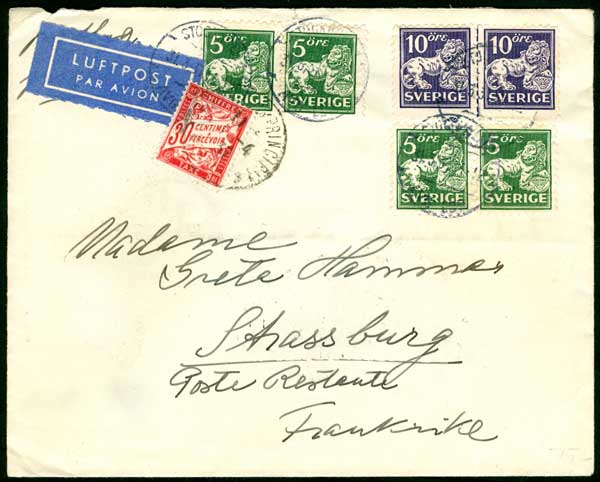 LUFTPOST
PAR AVION
5 öre
SVERIGE
5 öre
SVERIGE
10 öre
SVERIGE
10 öre
SVERIGE
5 öre
SVERIGE
5 öre
SVERIGE
30 CENTIMES
A PERCEVOIR
Madame
Grete Hammer
Strassburg
Poste Restante
Frankrike